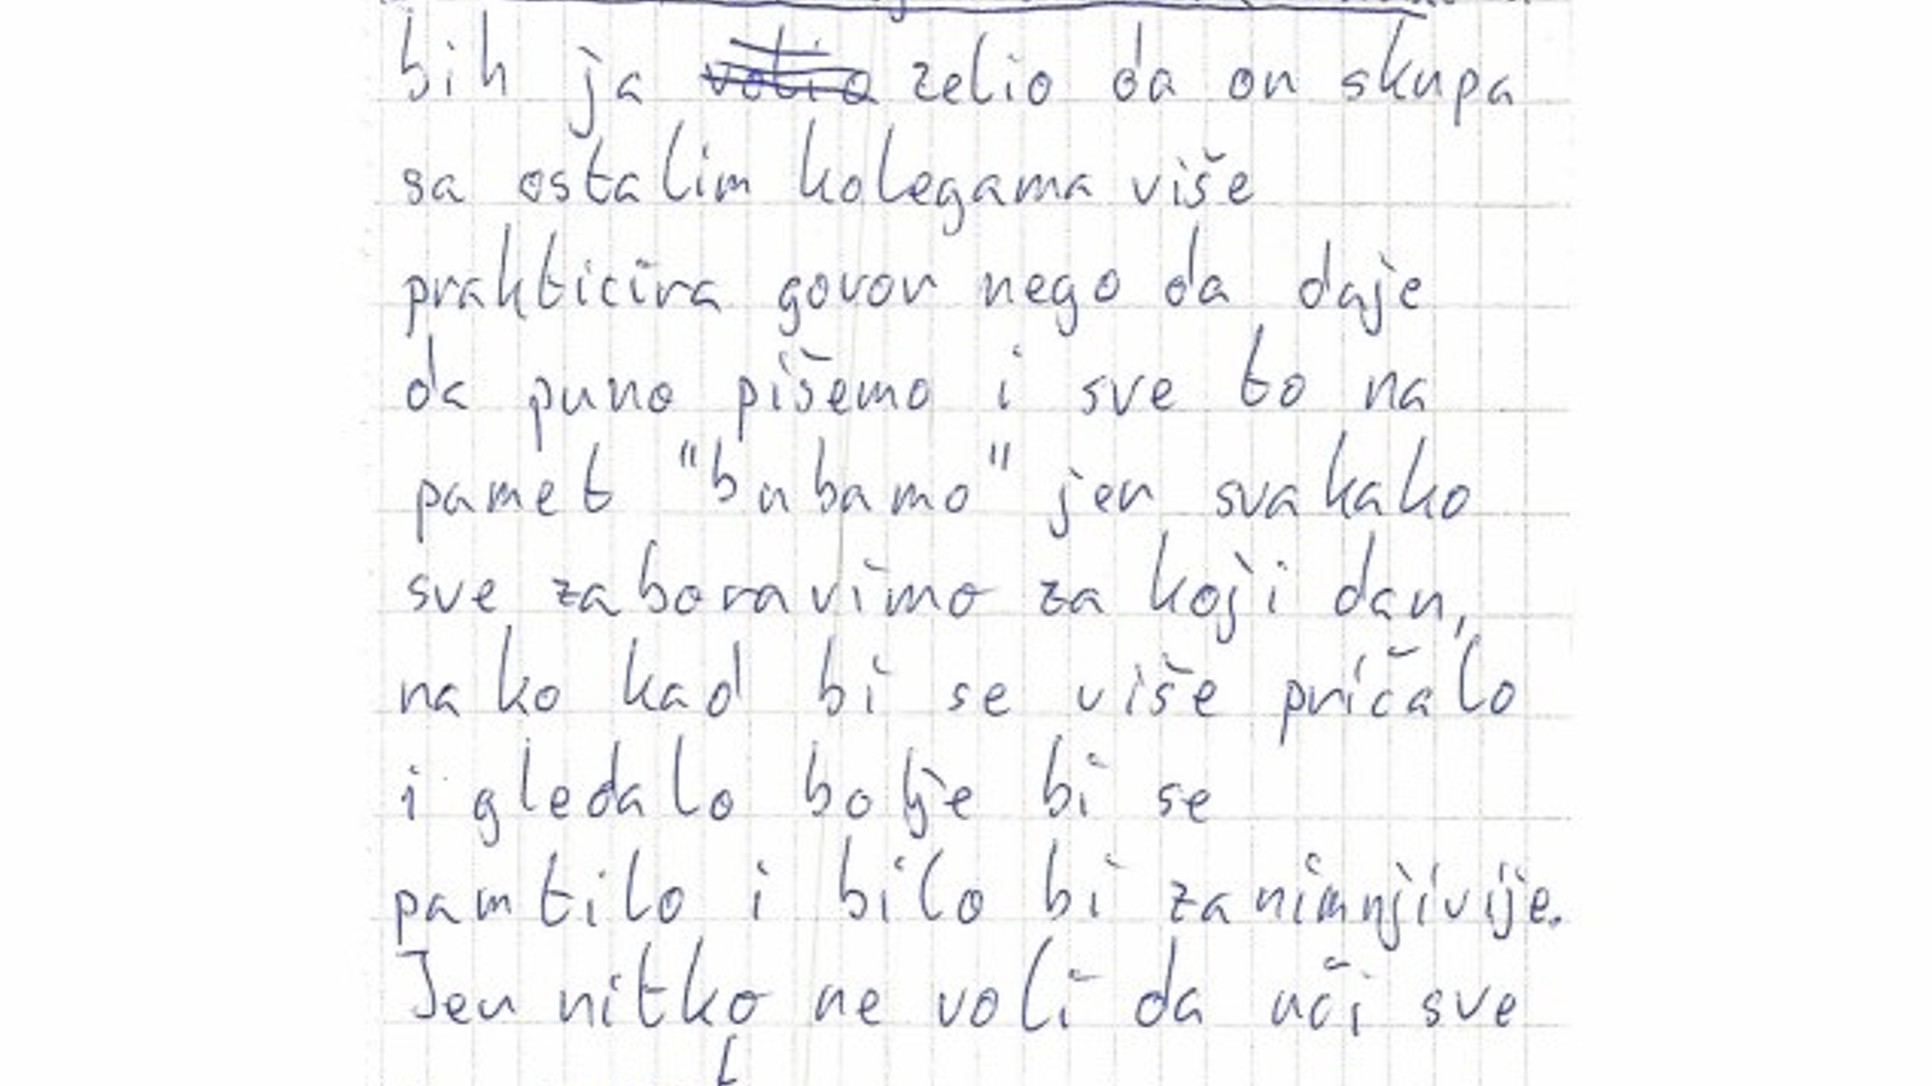 bih ja zelio da on skupa
sa ostalim kolegama više
prakticira govor nego da daje
da puno pišemo i sve to na
pamet "bubamo" jer svakako
sve zaboravimo za koji dan,
nako kad bi se više pričalo
i gledalo bolje bi se
pamtilo i bilo bi zanimnjivije.
Jer nitko ne voli da uči sve